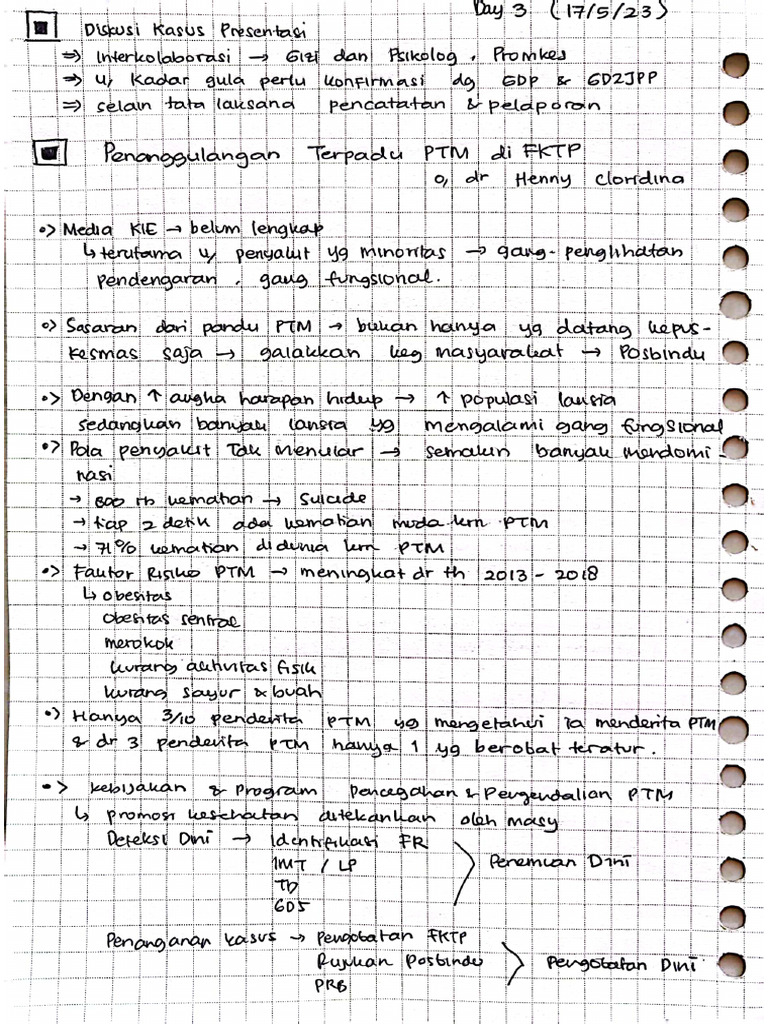 Day 3 (17/5/23)
Diskusi Kasus Presentasi
⇒ Interkolaborasi → Gizi dan Psikolog, Promkes
⇒ u/ Kadar gula perlu konfirmasi dg GDP & GD2JPP
⇒ selain tata laksana pencatatan & pelaporan
Penanggulangan Terpadu PTM di FKTP
o/ dr Henny Cloridina
•> Media KIE → belum lengkap
↳ terutama u/ penyakit yg minoritas → gang. penglihatan
pendengaran, gang fungsional.
•> Sasaran dari pandu PTM → bukan hanya yg datang kepus-
kesmas saja → galakkan keg masyarakat → Posbindu
•> Dengan ↑ angka harapan hidup → ↑ populasi lansia
sedangkan banyak lansia yg mengalami gang fungsional
•> Pola penyakit Tak menular → semakin banyak mendomi-
nasi
→ 800 rb kematian → Suicide
→ tiap 2 detik ada kematian muda krn PTM
→ 71% kematian didunia krn PTM
•> Faktor Risiko PTM → meningkat dr th 2013 - 2018
↳ obesitas
obesitas sentral
merokok
kurang aktivitas fisik
kurang sayur & buah
•> Hanya 3/10 penderita PTM yg mengetahui ia menderita PTM
& dr 3 penderita PTM hanya 1 yg berobat teratur.
•> Kebijakan & Program Pencegahan & Pengendalian PTM
↳ promosi kesehatan ditekankan oleh masy
Deteksi Dini → Identifikasi FR
IMT / LP
TD
GDS
Penemuan Dini
Penanganan kasus → Pengobatan FKTP
Rujukan Posbindu
PRB
Pengobatan Dini